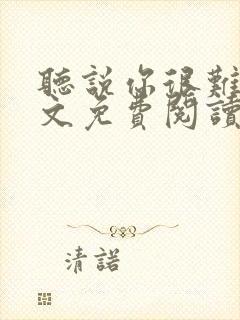 聽說你很難
文免費閱讀
清諾